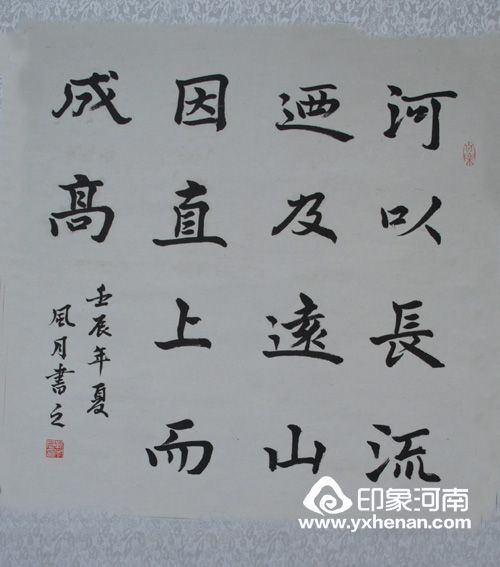 河以長流
迺及遠山
因直上而
成髙
壬辰年夏
風月書之
印象河南
www.yxhenan.com